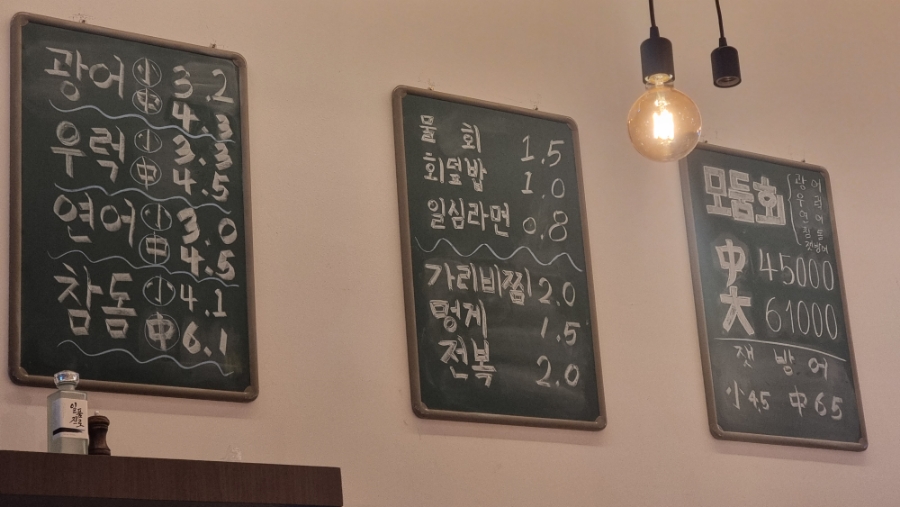 광어 小 3.2
中 4.3
우럭 小 3.3
中 4.5
연어 小 3.0
中 4.5
참돔 小 4.1
中 6.1
물 회 1.5
회덮밥 1.0
일심라면 0.8
가리비찜 2.0
멍게 1.5
전복 2.0
모둠회
광 어
우 럭
연 어
참 돔
잿방어
中 45000
大 61000
잿 방 어
小 4.5 中 6.5
일품진로